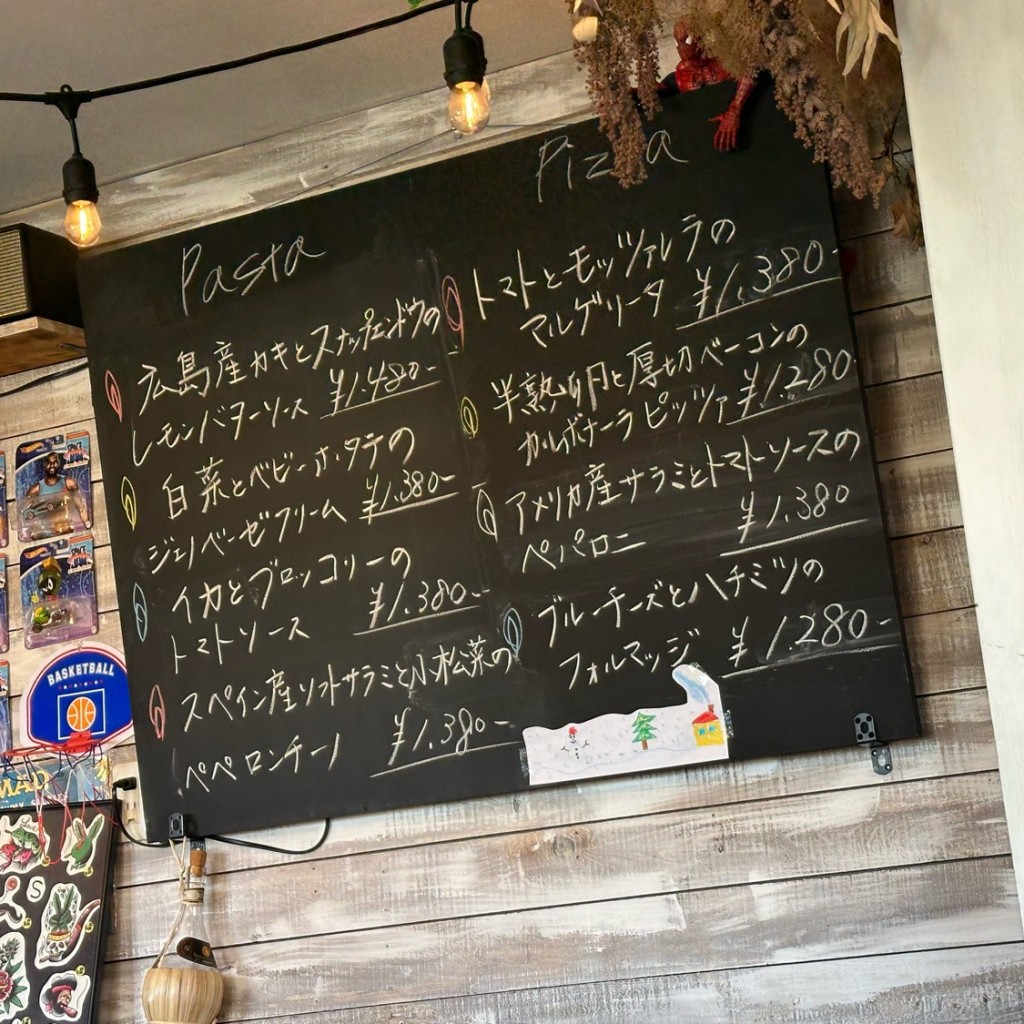 Pasta
広島産カキとスナップエンドウの
レモンバターソース ¥1.480-
白菜とベビーホタテの
ジェノベーゼクリーム ¥1.380-
イカとブロッコリーの
トマトソース ¥1.380-
スペイン産ソフトサラミと小松菜の
ペペロンチーノ ¥1.380-
Pizza
トマトとモッツァレラの
マルゲリータ ¥1.380-
半熟卵と厚切ベーコンの
カルボナーラピッツァ ¥1.280
アメリカ産サラミとトマトソースの
ペパロニ ¥1.380
ブルーチーズとハチミツの
フォルマッジ ¥1.280-
BASKETBALL
MAD
S